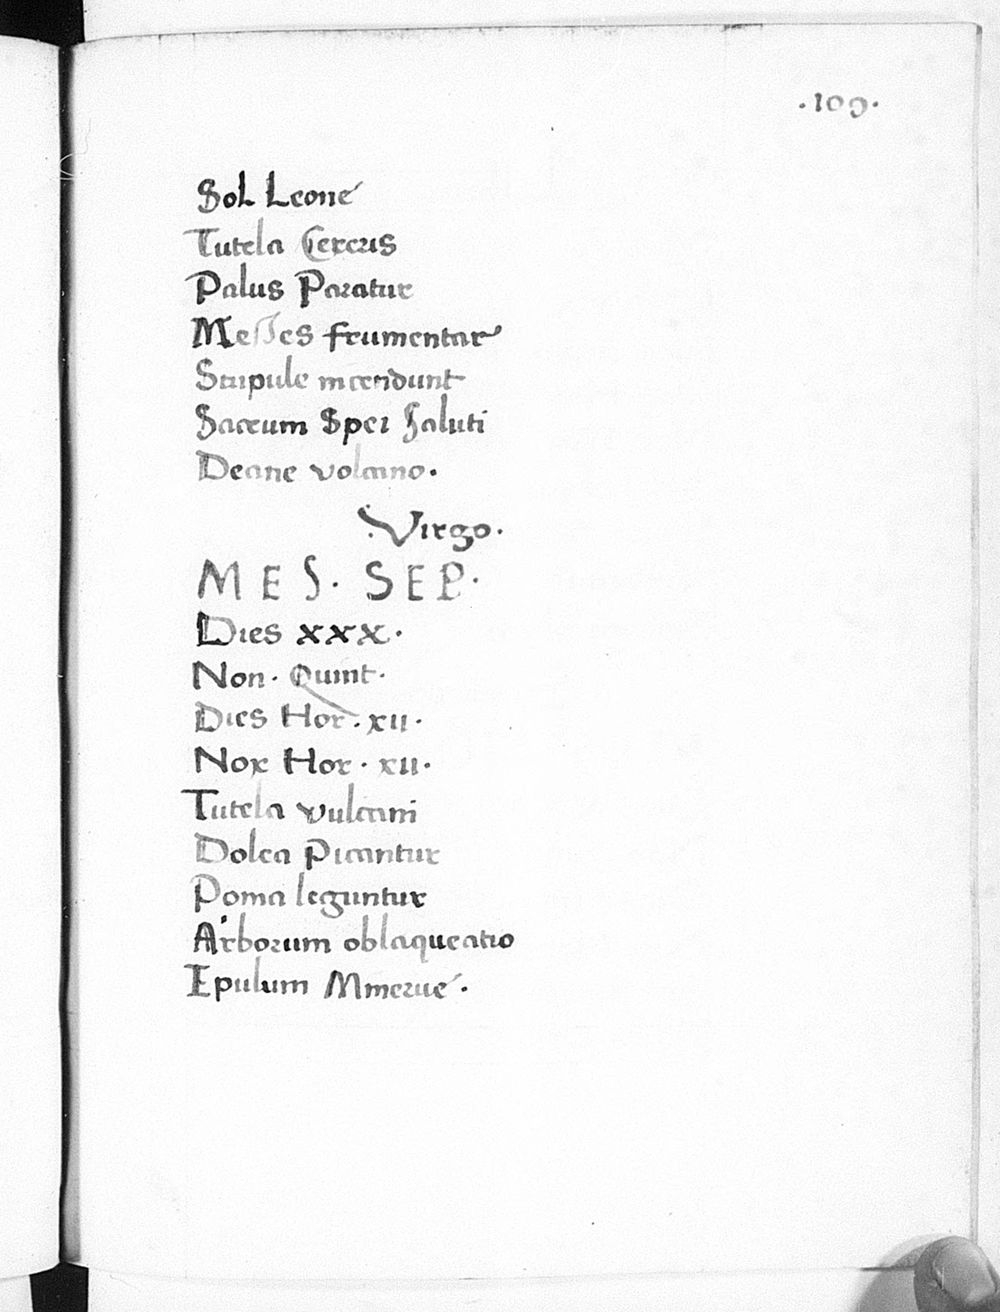 ·109·
Sol Leone
Tutela Cereris
Palus Paratur
Messes frumentar
Stipule incendunt
Sacrum Spei Saluti
Deane volcano·
Virgo·
MES· SEP·
Dies xxx·
Non· Quint·
Dies Hor· xii·
Nox Hor· xii·
Tutela vulcani
Dolea Picantur
Poma leguntur
Arborum oblaqueatio
Epulum Minerue·